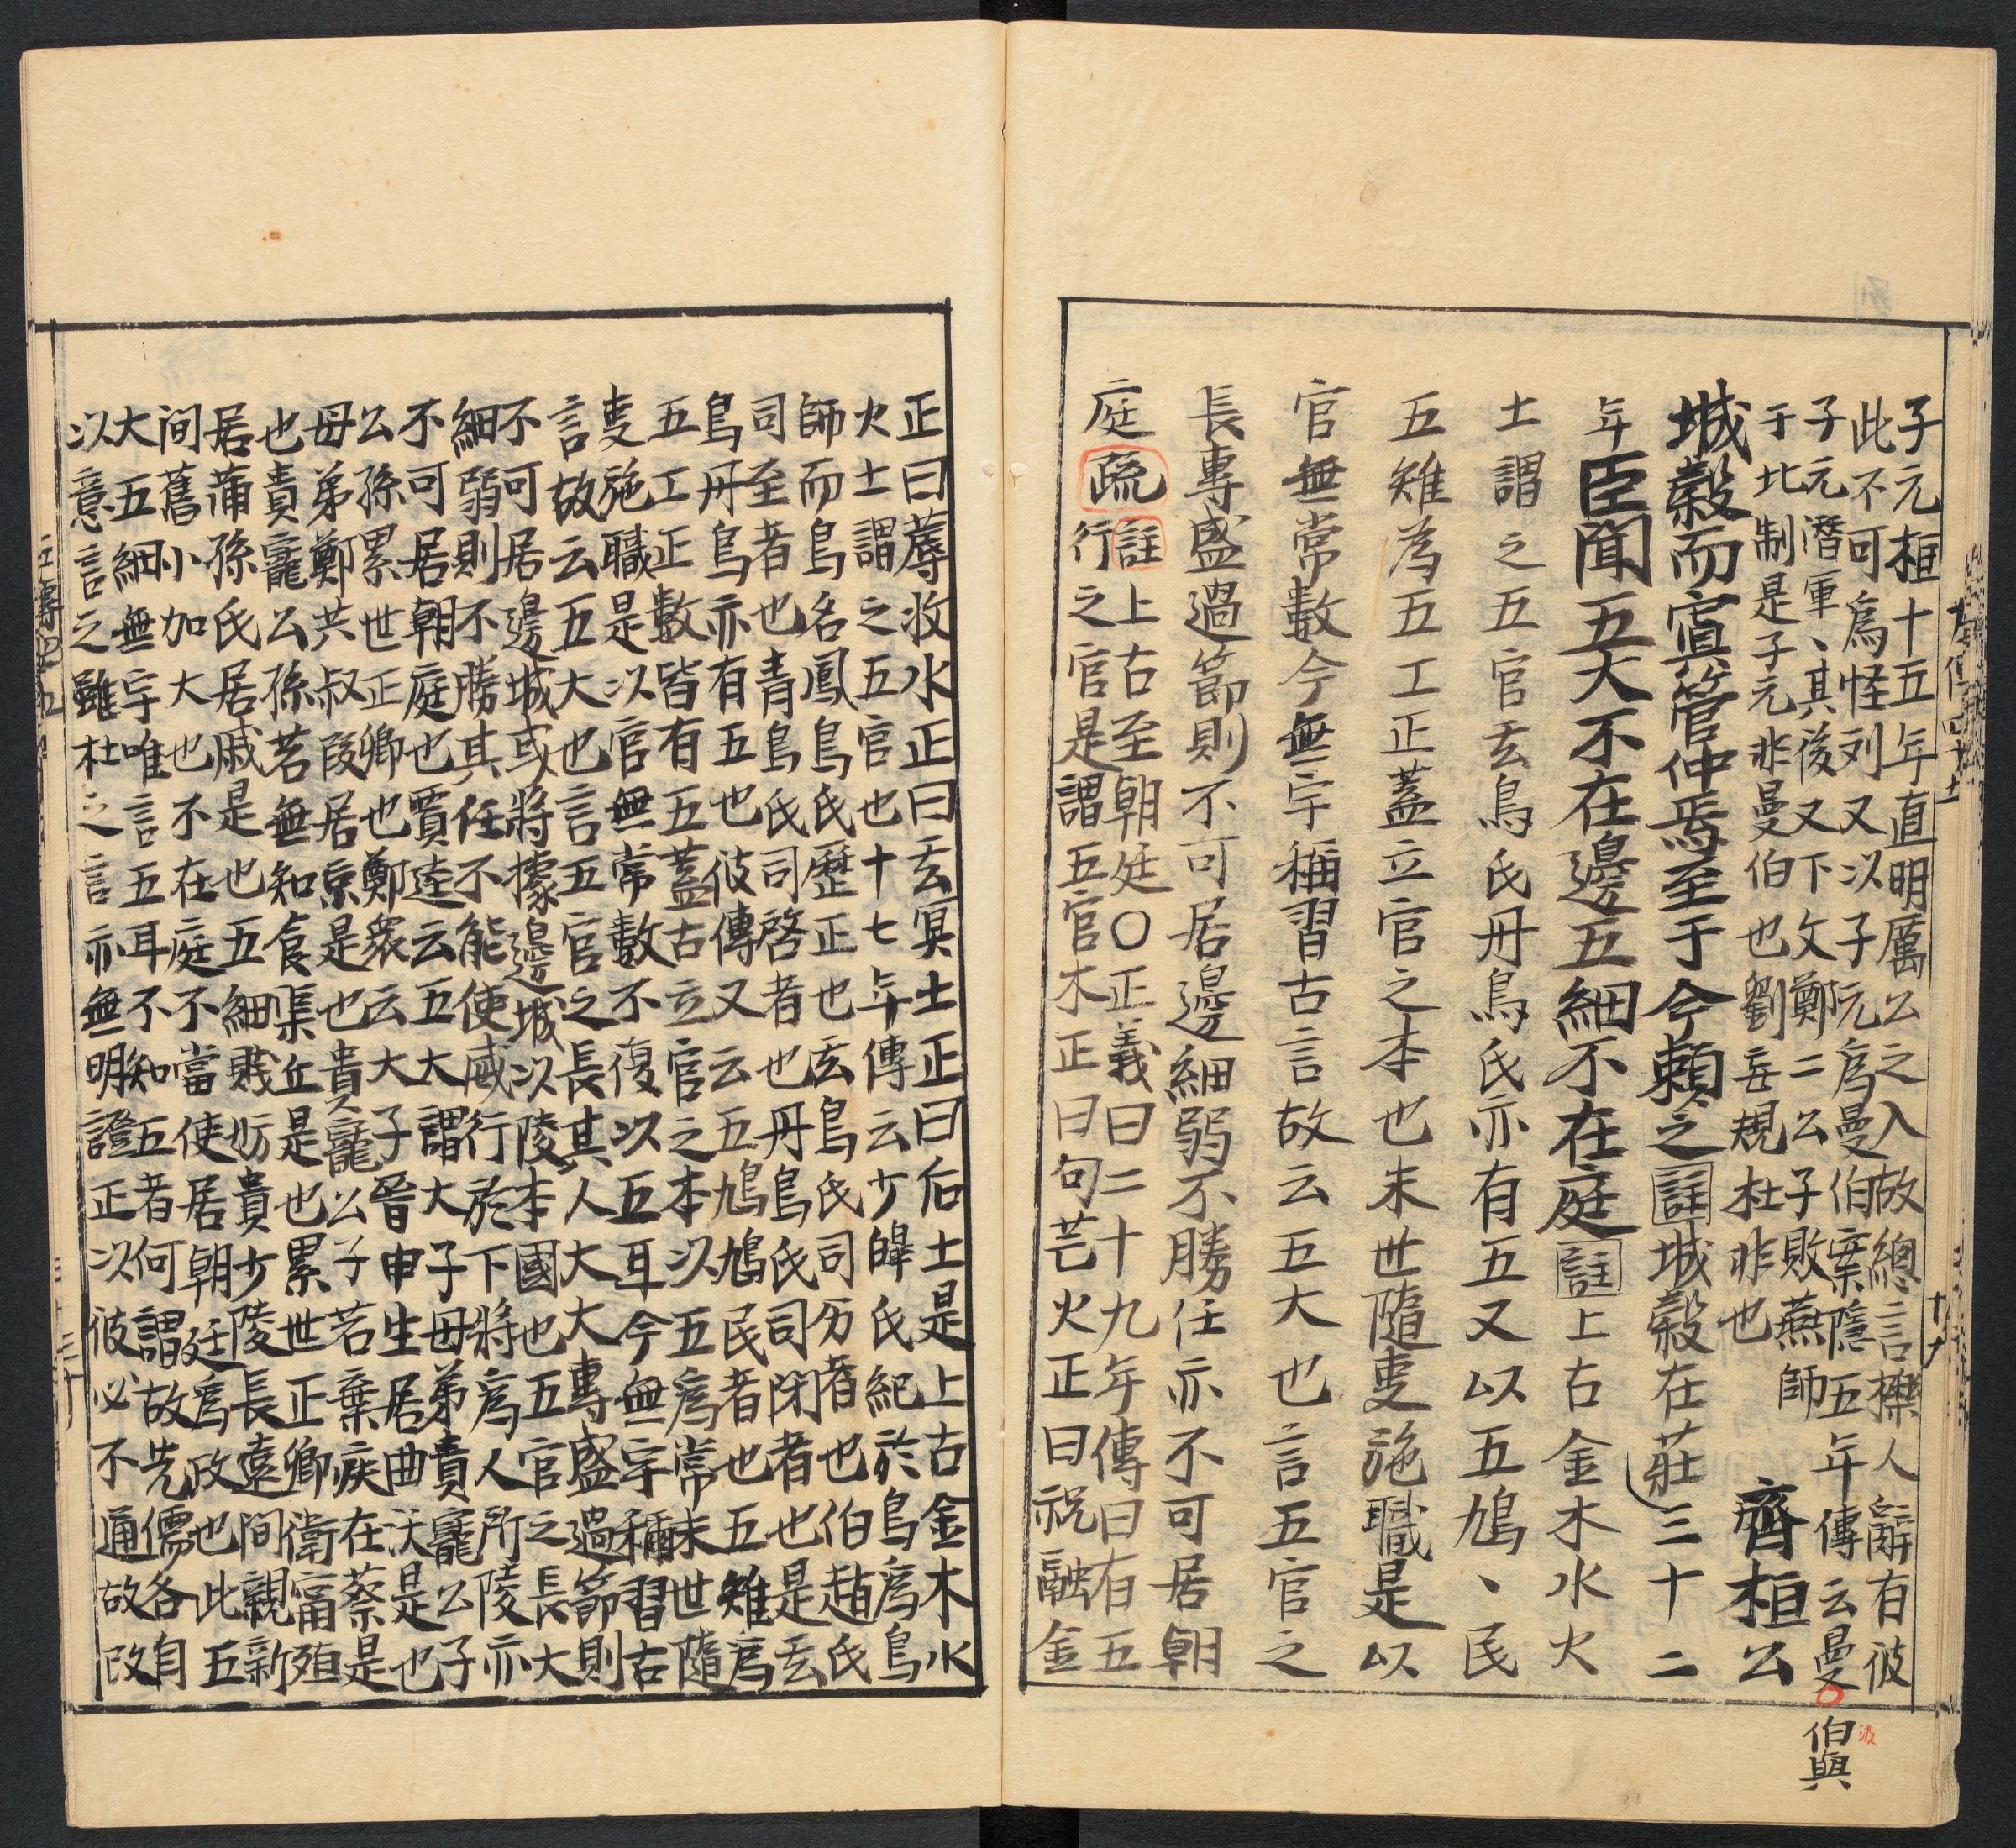 子元桓十五年直明厲公之入故緫言櫟人辭有彼
此不可爲怪刘又以子元爲曼伯案隱五年傳云曼伯與
子元潛軍、其後又下文鄭二公子敗燕師
于北制是子元非曼伯也劉妄規杜非也
齊桓公
城穀而寘管仲焉至于今賴之註城穀在莊三十二
年臣聞五大不在邊五細不在庭註上古金木水火
土謂之五官玄鳥氏丹鳥氏亦有五又以五鳩、民
五雉為五工正蓋立官之本也末世隨叓施職是以
官無常數今無宇稱習古言故云五大也言五官之
長專盛過節則不可居邊細弱不勝任亦不可居朝
庭疏註上古至朝廷〇正義曰二十九年傳曰有五
行之官是謂五官木正曰句芒火正曰祝融金
正曰蓐收水正曰玄冥土正曰后土是上古金木水
火土謂之五官也十七年傳云少皞氏紀於鳥爲鳥
師而鳥名鳳鳥氏歷正也玄鳥氏司分者也伯趙氏
司至者也青鳥氏司啓者也丹鳥氏司閉者也是玄
鳥丹鳥亦有五也彼傳又云五鳩鳩民者也五雉爲
五工正數皆有五蓋古立官之本以五爲常末世隨
叓施職是以官無常數不復以五耳今無宇稱習古
言故云五大也言五官之長其人大大專盛過節則
不可居邊城或將據邊城以陵本國也五官之長大
細弱則不勝其任不能使威行於下將爲人所陵亦
不可居朝庭也賈逵云五大謂大子母弟貴寵公子
公孫累世正卿也鄭衆云大子晉申生居曲沃是也
母弟鄭共叔段居京是也貴寵公子若棄疾在蔡是
也貴寵公孫若無知食渠丘是也累世正卿衛甯殖
居蒲孫氏居戚是也五細賤妨貴少陵長遠間親新
間舊小加大也不在庭不當使居朝廷爲政也此五
大五細無宇唯言五耳不知五者何謂故先儒各自
以意言之雖杜之言亦無明證正以彼必不通故改